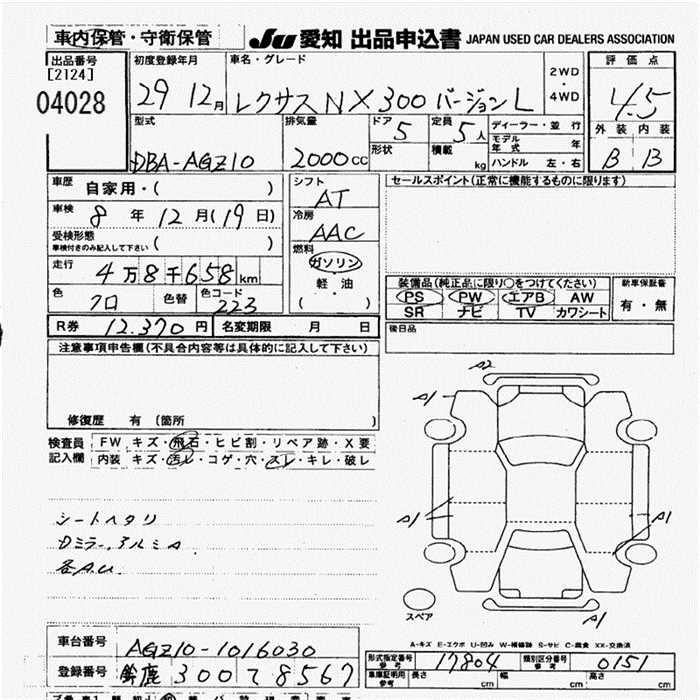 車内保管・守衛保管
JU 愛知 出品申込書 JAPAN USED CAR DEALERS ASSOCIATION
出品番号
[2124]
04028
初度登録年月
29 12月
車名・グレード
レクサスNX300 バージョンL
2WD
・
4WD
評価点
4.5
外装 内装
B B
型式
DBA-AGZ10
排気量
2000cc
ドア
5
形状
定員
5人
積載
kg
ディーラー・並行
モデル年式 年
ハンドル 左・右
車歴
自家用・( )
車検
8年 12月(19日)
受検形態
車検付きのみ記入して下さい ( )
走行
4万8千658km
色
クロ
色替
色コード
223
シフト
AT
冷房
AAC
燃料
ガソリン
・
軽・油
( ・ )
セールスポイント(正常に機能するものに限ります)
装備品(純正品に限り○をつけてください)
PS PW エアB AW
SR ナビ TV カワシート
新車保証書
有・無
R券 12,370円 名変期限 月 日
後日品
注意事項申告欄(不具合内容等は具体的に記入して下さい)
修復歴 有 (箇所 )
検査員記入欄
FW キズ・飛石・ヒビ割・リペア跡・X要
内装 キズ・汚レ・コゲ・穴・スレ・キレ・破レ
シートヘタリ
Dミラー、アルミA.
各A.U.
A2
A1
A1
A1
A1
スペア
A-キズ E-エクボ U-凹み W-補修跡 S-サビ C-腐食 XX-交換済
車台番号
AGZ10-1016030
登録番号
鈴鹿 300 て 8567
形式指定番号
参考
17804
類別区分番号
参考
0151
車庫証明用
参考
長さ cm 幅 cm 高さ cm